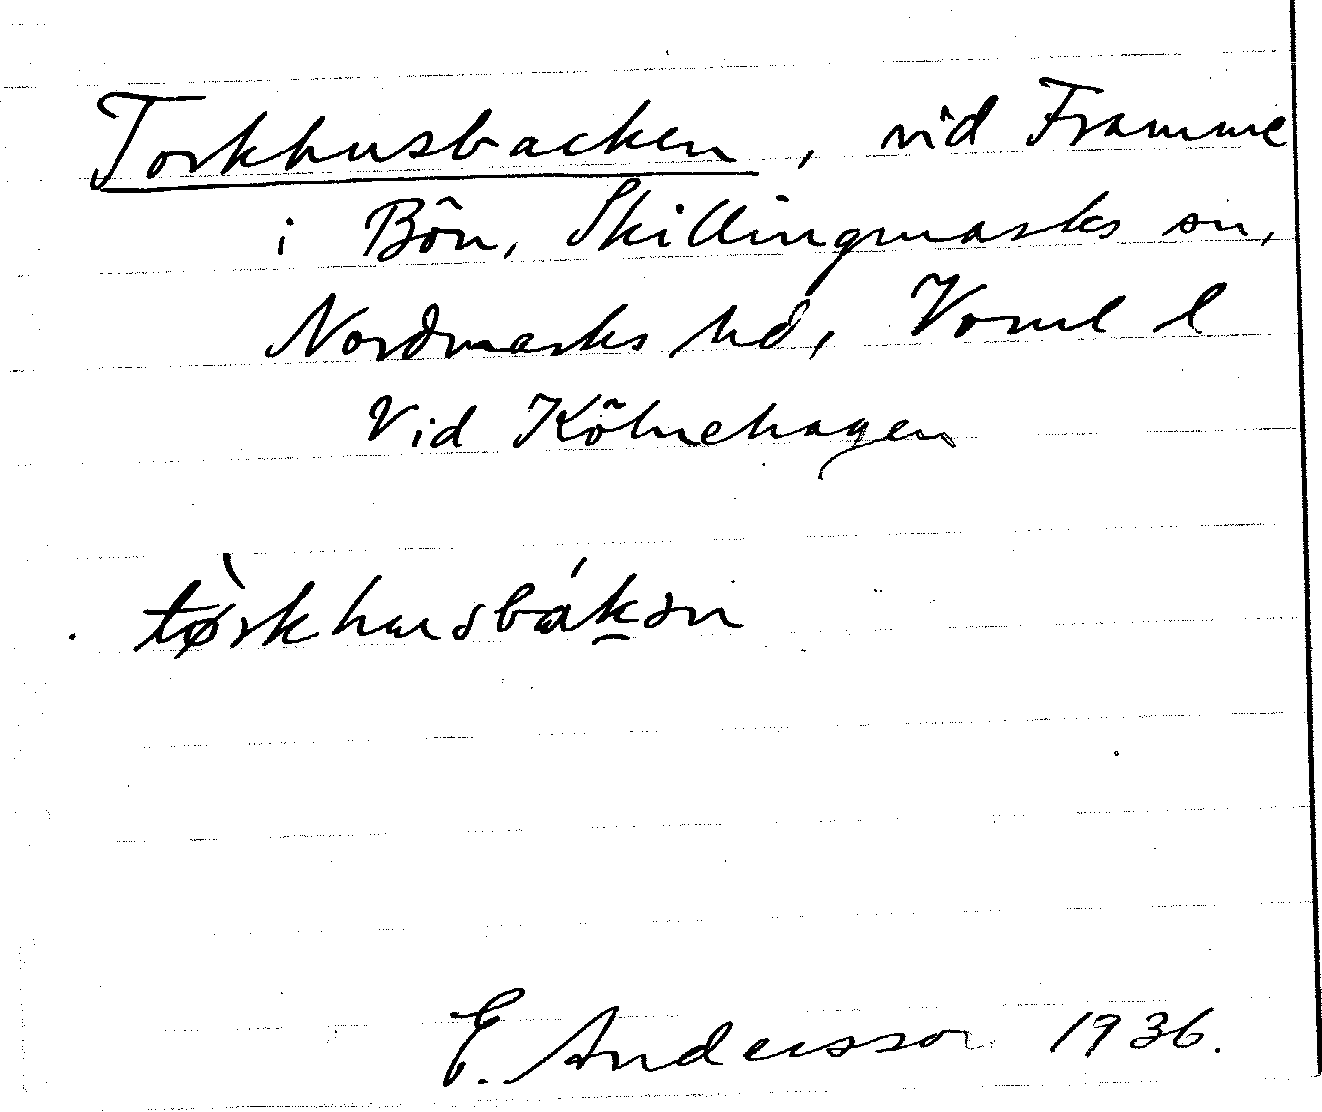 Torkhusbacken, vid Framme
i Bön, Skillingmarks sn,
Nordmarks hd, Vorml l
Vid Kölnehagen
tø̀rkhusbákən
E. Andersson 1936.